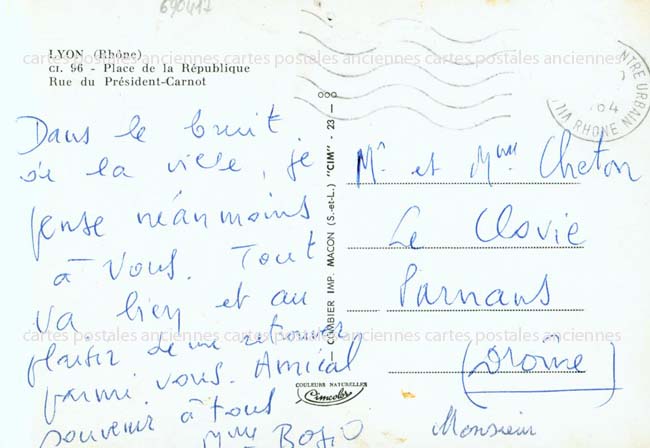 690417
LYON (Rhône)
CI. 96 - Place de la République
Rue du Président-Carnot
cartes postales anciennes cartes postales anciennes cartes postales anciennes
Dans le bruit
de la ville, je
pense néanmoins
à vous. Tout
va bien et au
plaisir de me retrouver
parmi vous. Amical
souvenir à tous
Mme
COMBIER IMP. MACON (S.-et-L.) "CIM" - 23 - 000
COULEURS NATURELLES
Cimcolor
NTRE URBAIN
64
RHONE
Mr et Mme Cheton
Le Clovie
Parnans
(Drôme)
Monsieur
cartes postales anciennes cartes postales anciennes cartes postales anciennes